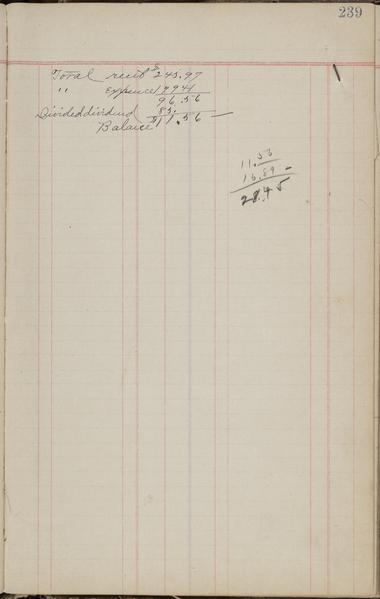 239
Total recit $245.97
" Expence 149 41
96.56
Divided dividend 85.
Balance $11.56
11.56
16.89
28.45